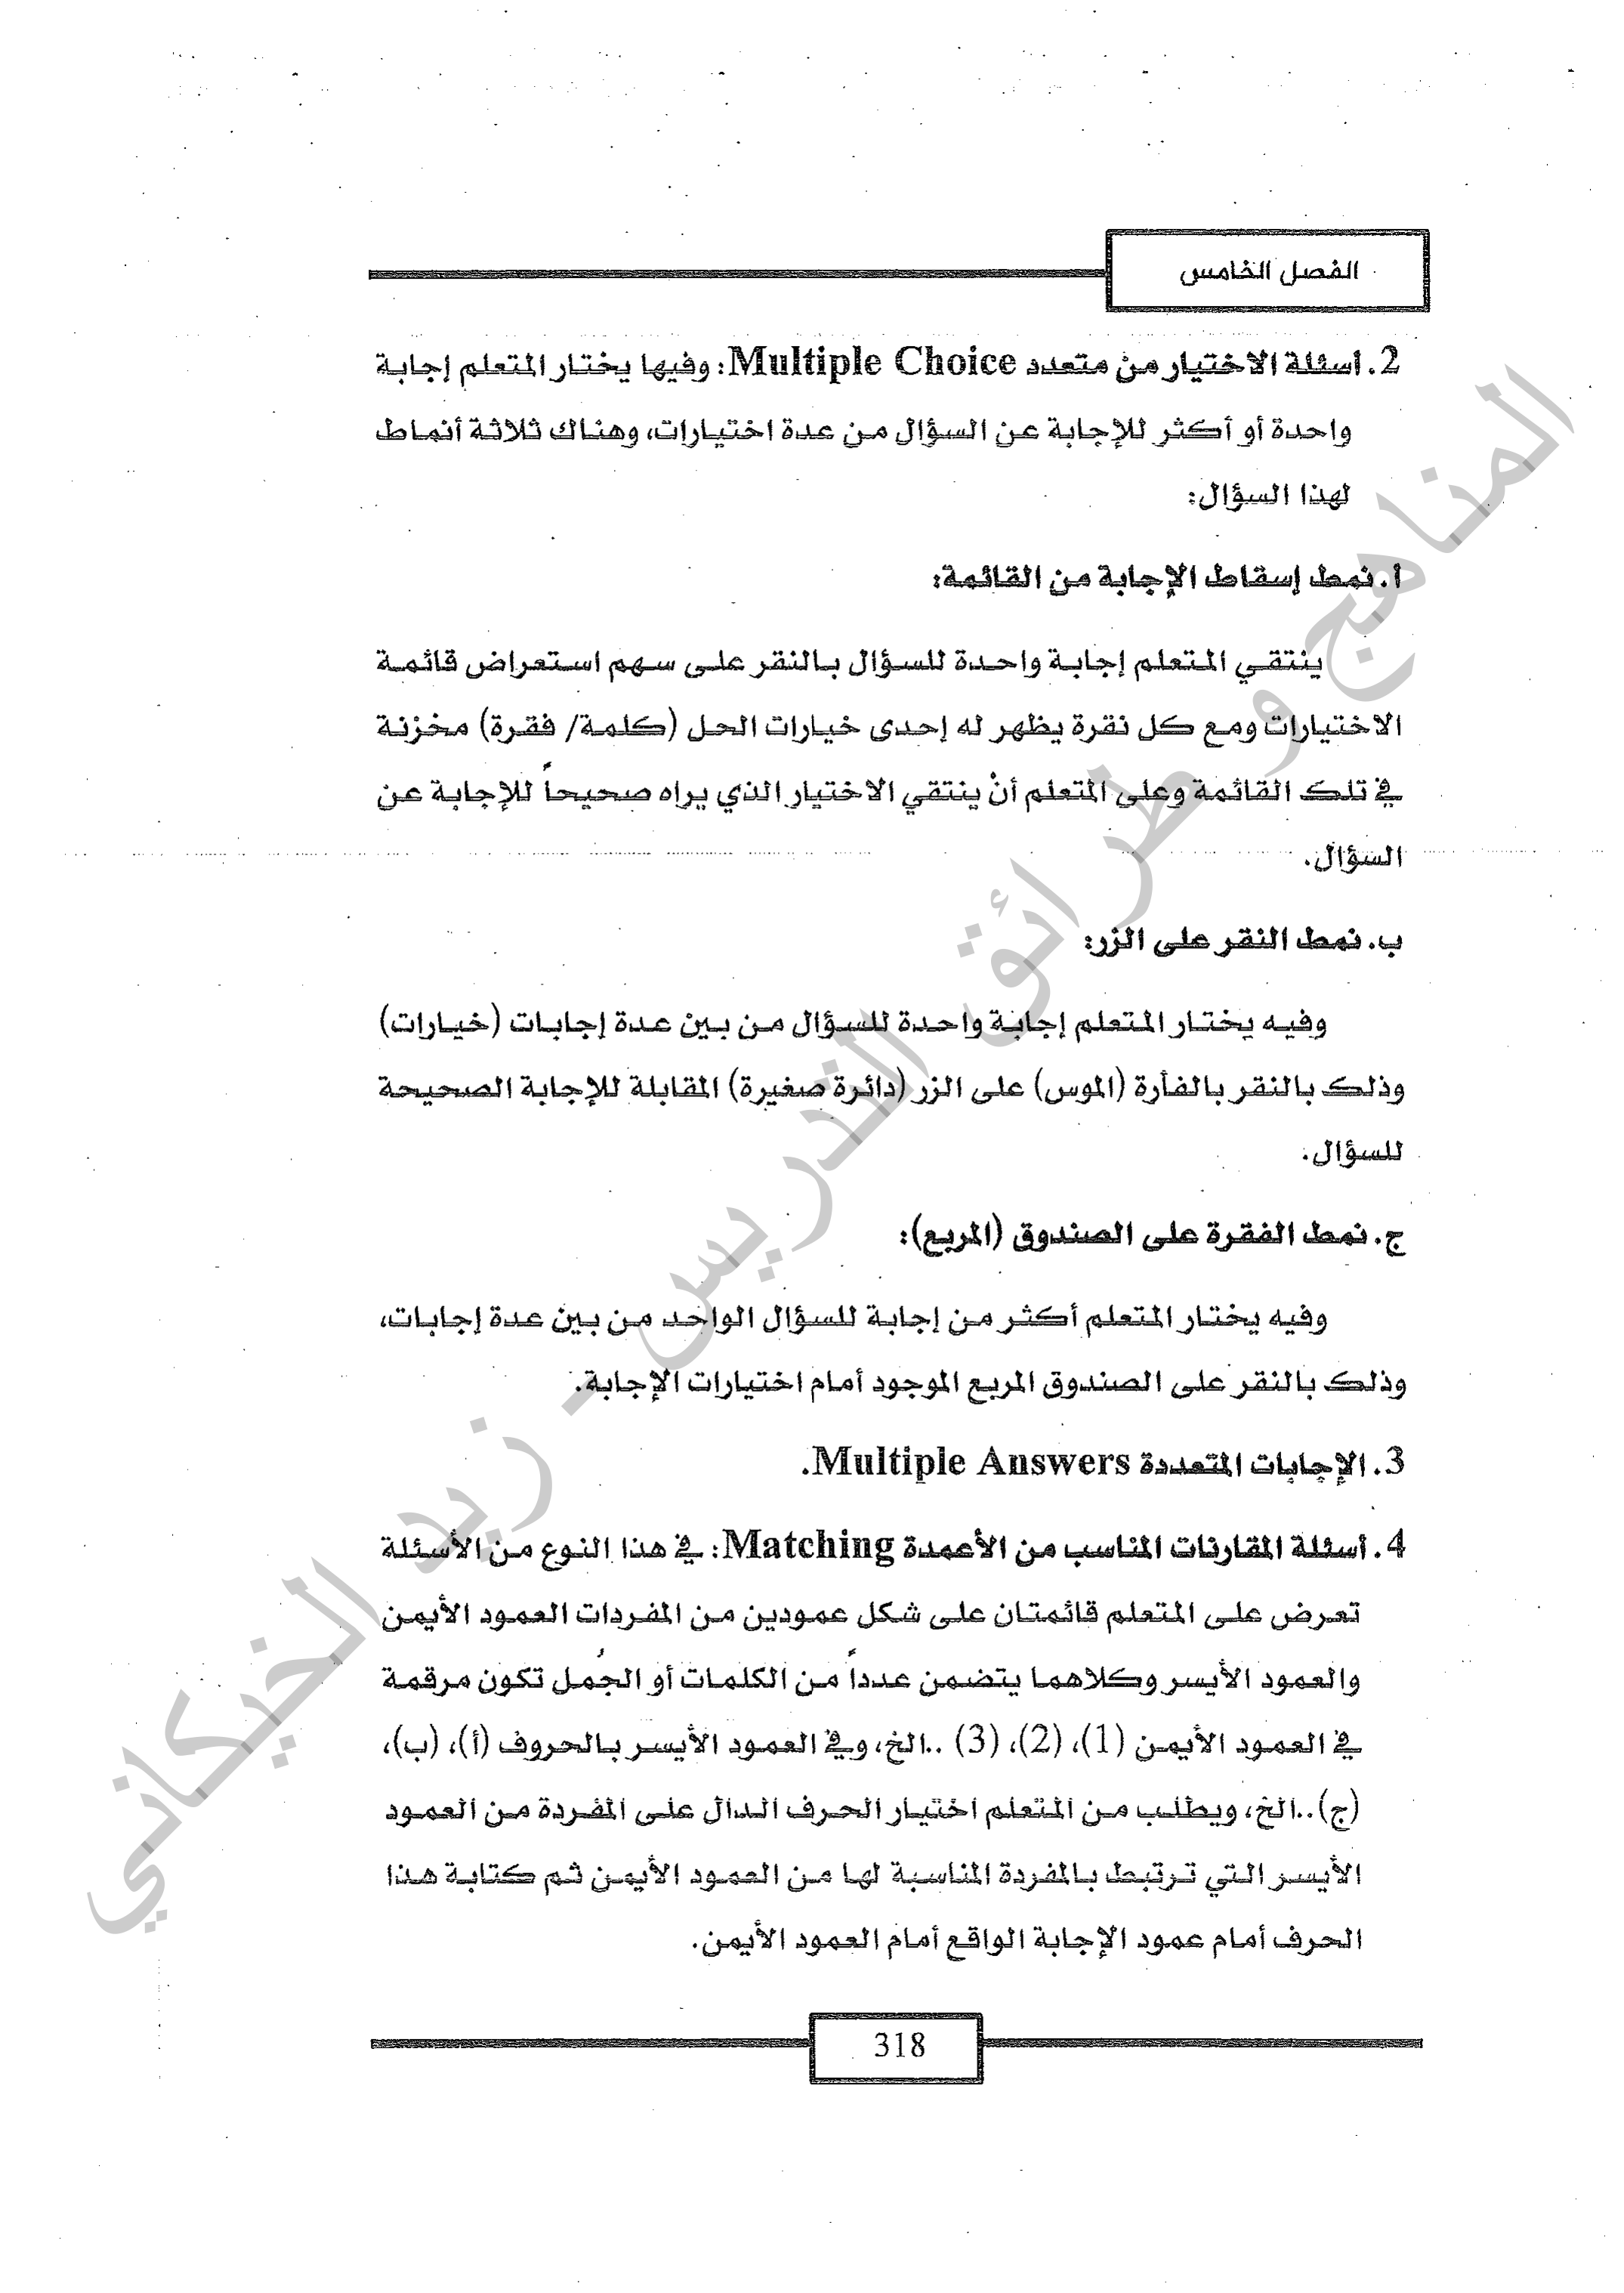 الفصل الخامس
2. أسئلة الاختيار من متعدد Multiple Choice: وفيها يختار المتعلم إجابة
واحدة أو أكثر للإجابة عن السؤال من عدة اختيارات، وهناك ثلاثة أنماط
لهذا السؤال:
أ. نمط إسقاط الإجابة من القائمة:
ينتقي المتعلم إجابة واحدة للسؤال بالنقر على سهم استعراض قائمة
الاختيارات ومع كل نقرة يظهر له إحدى خيارات الحل (كلمة/ فقرة) مخزنة
في تلك القائمة وعلى المتعلم أنْ ينتقي الاختيار الذي يراه صحيحاً للإجابة عن
السؤال.
ب. نمط النقر على الزر:
وفيه يختار المتعلم إجابة واحدة للسؤال من بين عدة إجابات (خيارات)
وذلك بالنقر بالفأرة (الموس) على الزر (دائرة صغيرة) المقابلة للإجابة الصحيحة
للسؤال.
ج. نمط الفقرة على الصندوق (المربع):
وفيه يختار المتعلم أكثر من إجابة للسؤال الواحد من بين عدة إجابات،
وذلك بالنقر على الصندوق المربع الموجود أمام اختيارات الإجابة.
3. الإجابات المتعددة Multiple Answers.
4. أسئلة المقارنات المناسب من الأعمدة Matching: في هذا النوع من الأسئلة
تعرض على المتعلم قائمتان على شكل عمودين من المفردات العمود الأيمن
والعمود الأيسر وكلاهما يتضمن عدداً من الكلمات أو الجُمل تكون مرقمة
في العمود الأيمن (1)، (2)، (3) ..الخ، وفي العمود الأيسر بالحروف (أ)، (ب)،
(ج)..الخ، ويطلب من المتعلم اختيار الحرف الدال على المفردة من العمود
الأيسر التي ترتبط بالمفردة المناسبة لها من العمود الأيمن ثم كتابة هذا
الحرف أمام عمود الإجابة الواقع أمام العمود الأيمن.
318
المناهج و طرائق التدريس - زيد الخيكاني